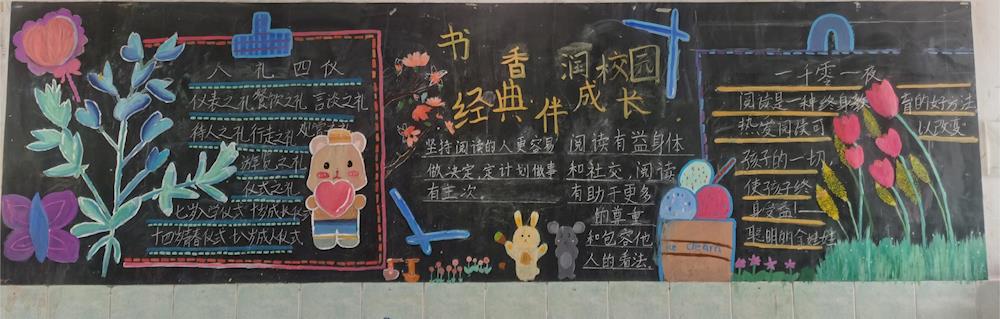 八礼四仪
仪表之礼 餐饮之礼 言谈之礼
待人之礼 行走之礼 观赏之礼
游览之礼
仪式之礼
七岁入学仪式 十岁成长仪式
十四岁青春仪式 十八岁成人仪式
书香润校园
经典伴成长
坚持阅读的人更容易
做决定,定计划做事
有主次
阅读有益身体
和社交,阅读
有助于更多
和包容他
人的看法。
ice cream
一千零一夜
阅读是一种终身教育的好方法
热爱阅读可以改变
孩子的一切,
使孩子终
身受益!
聪明的个娃娃